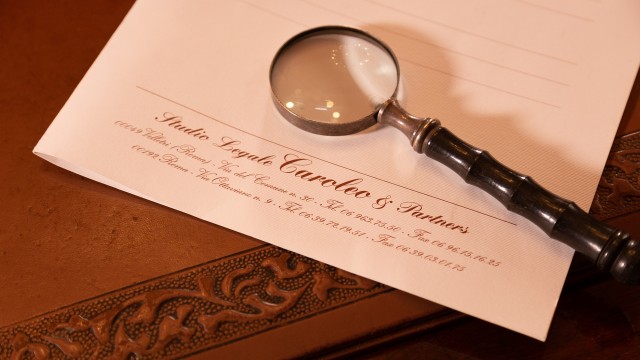 Studio Legale Caroleo & Partners
00049 Velletri (Roma) - Via del Comune n. 30 - Tel. 06 963.75.50 - Fax 06 96.15.16.25
00195 Roma - Via Ottaviano n. 9 - Tel. 06.39.79.19.51 - Fax 06.39.03.01.75